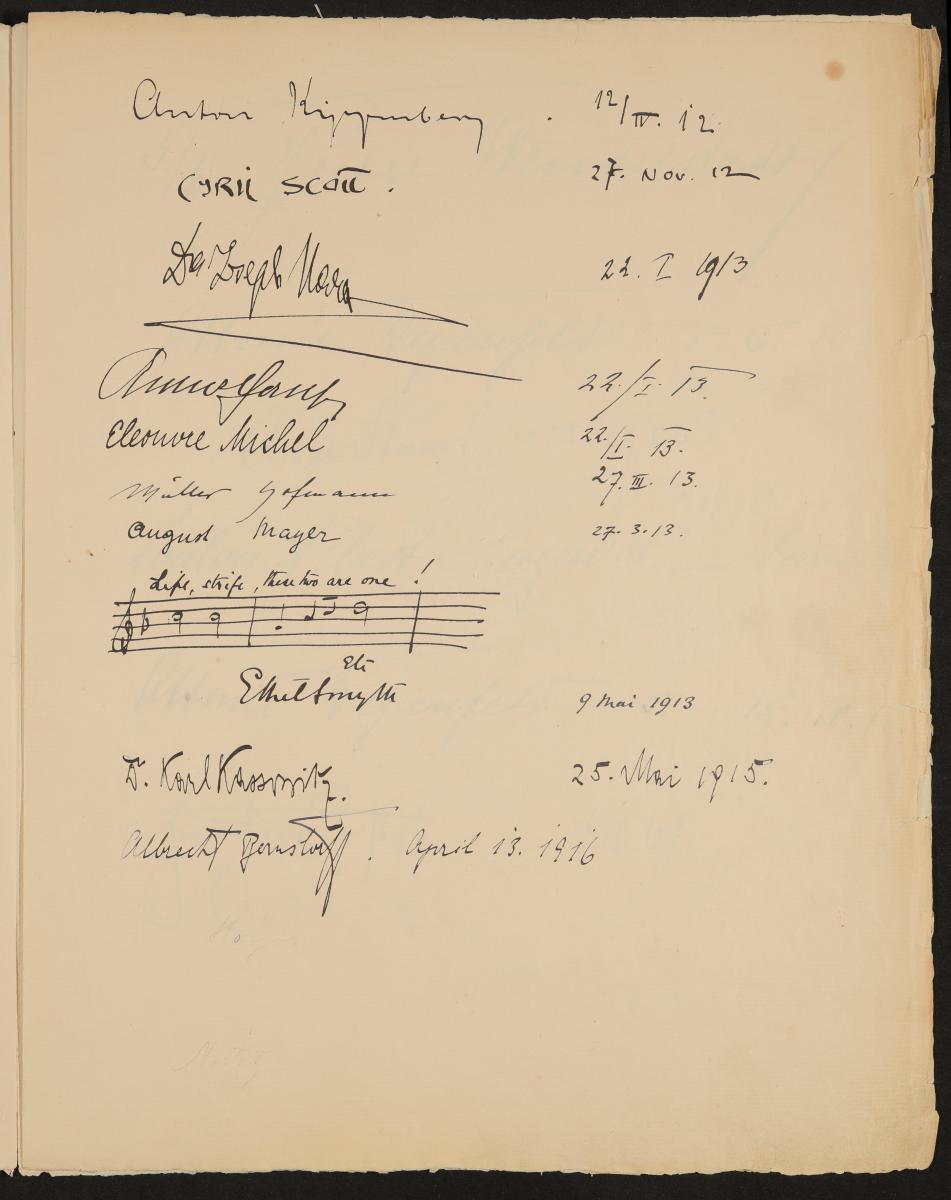 Anton Kippenberg. 12/IV. 12
CYRIL SCOTT. 27. Nov. 12
Dr Joseph 22. I 1913
22./I. 13.
Eleonore Michel 22/I. 13.
Müller Hofmann 27. III. 13.
August Mayer 27. 3. 13.
Life, strife, these two are one!
Etc
Ethel Smyth 9 Mai 1913
Dr. Karl Kassowitz. 25. Mai 1915.
Albrecht Bernstorff. April 13. 1916